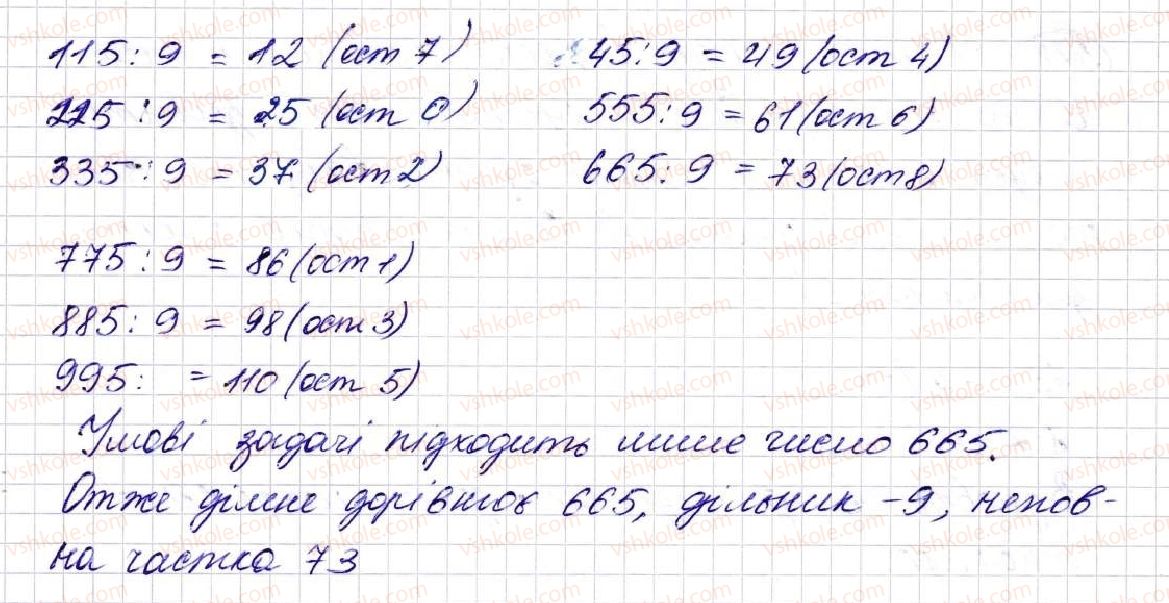 115 : 9 = 12 (ост 7)
225 : 9 = 25 (ост 0)
335 : 9 = 37 (ост 2)
45 : 9 = 49 (ост 4)
555 : 9 = 61 (ост 6)
665 : 9 = 73 (ост 8)
775 : 9 = 86 (ост 1)
885 : 9 = 98 (ост 3)
995 : = 110 (ост 5)
Умові задачі підходить лише число 665.
Отже ділене дорівнює 665, дільник - 9, непов-
на частка 73